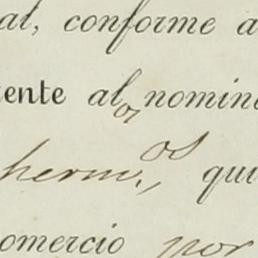 al, conforme a
tente al or nomin
herm.os qui
omercio por